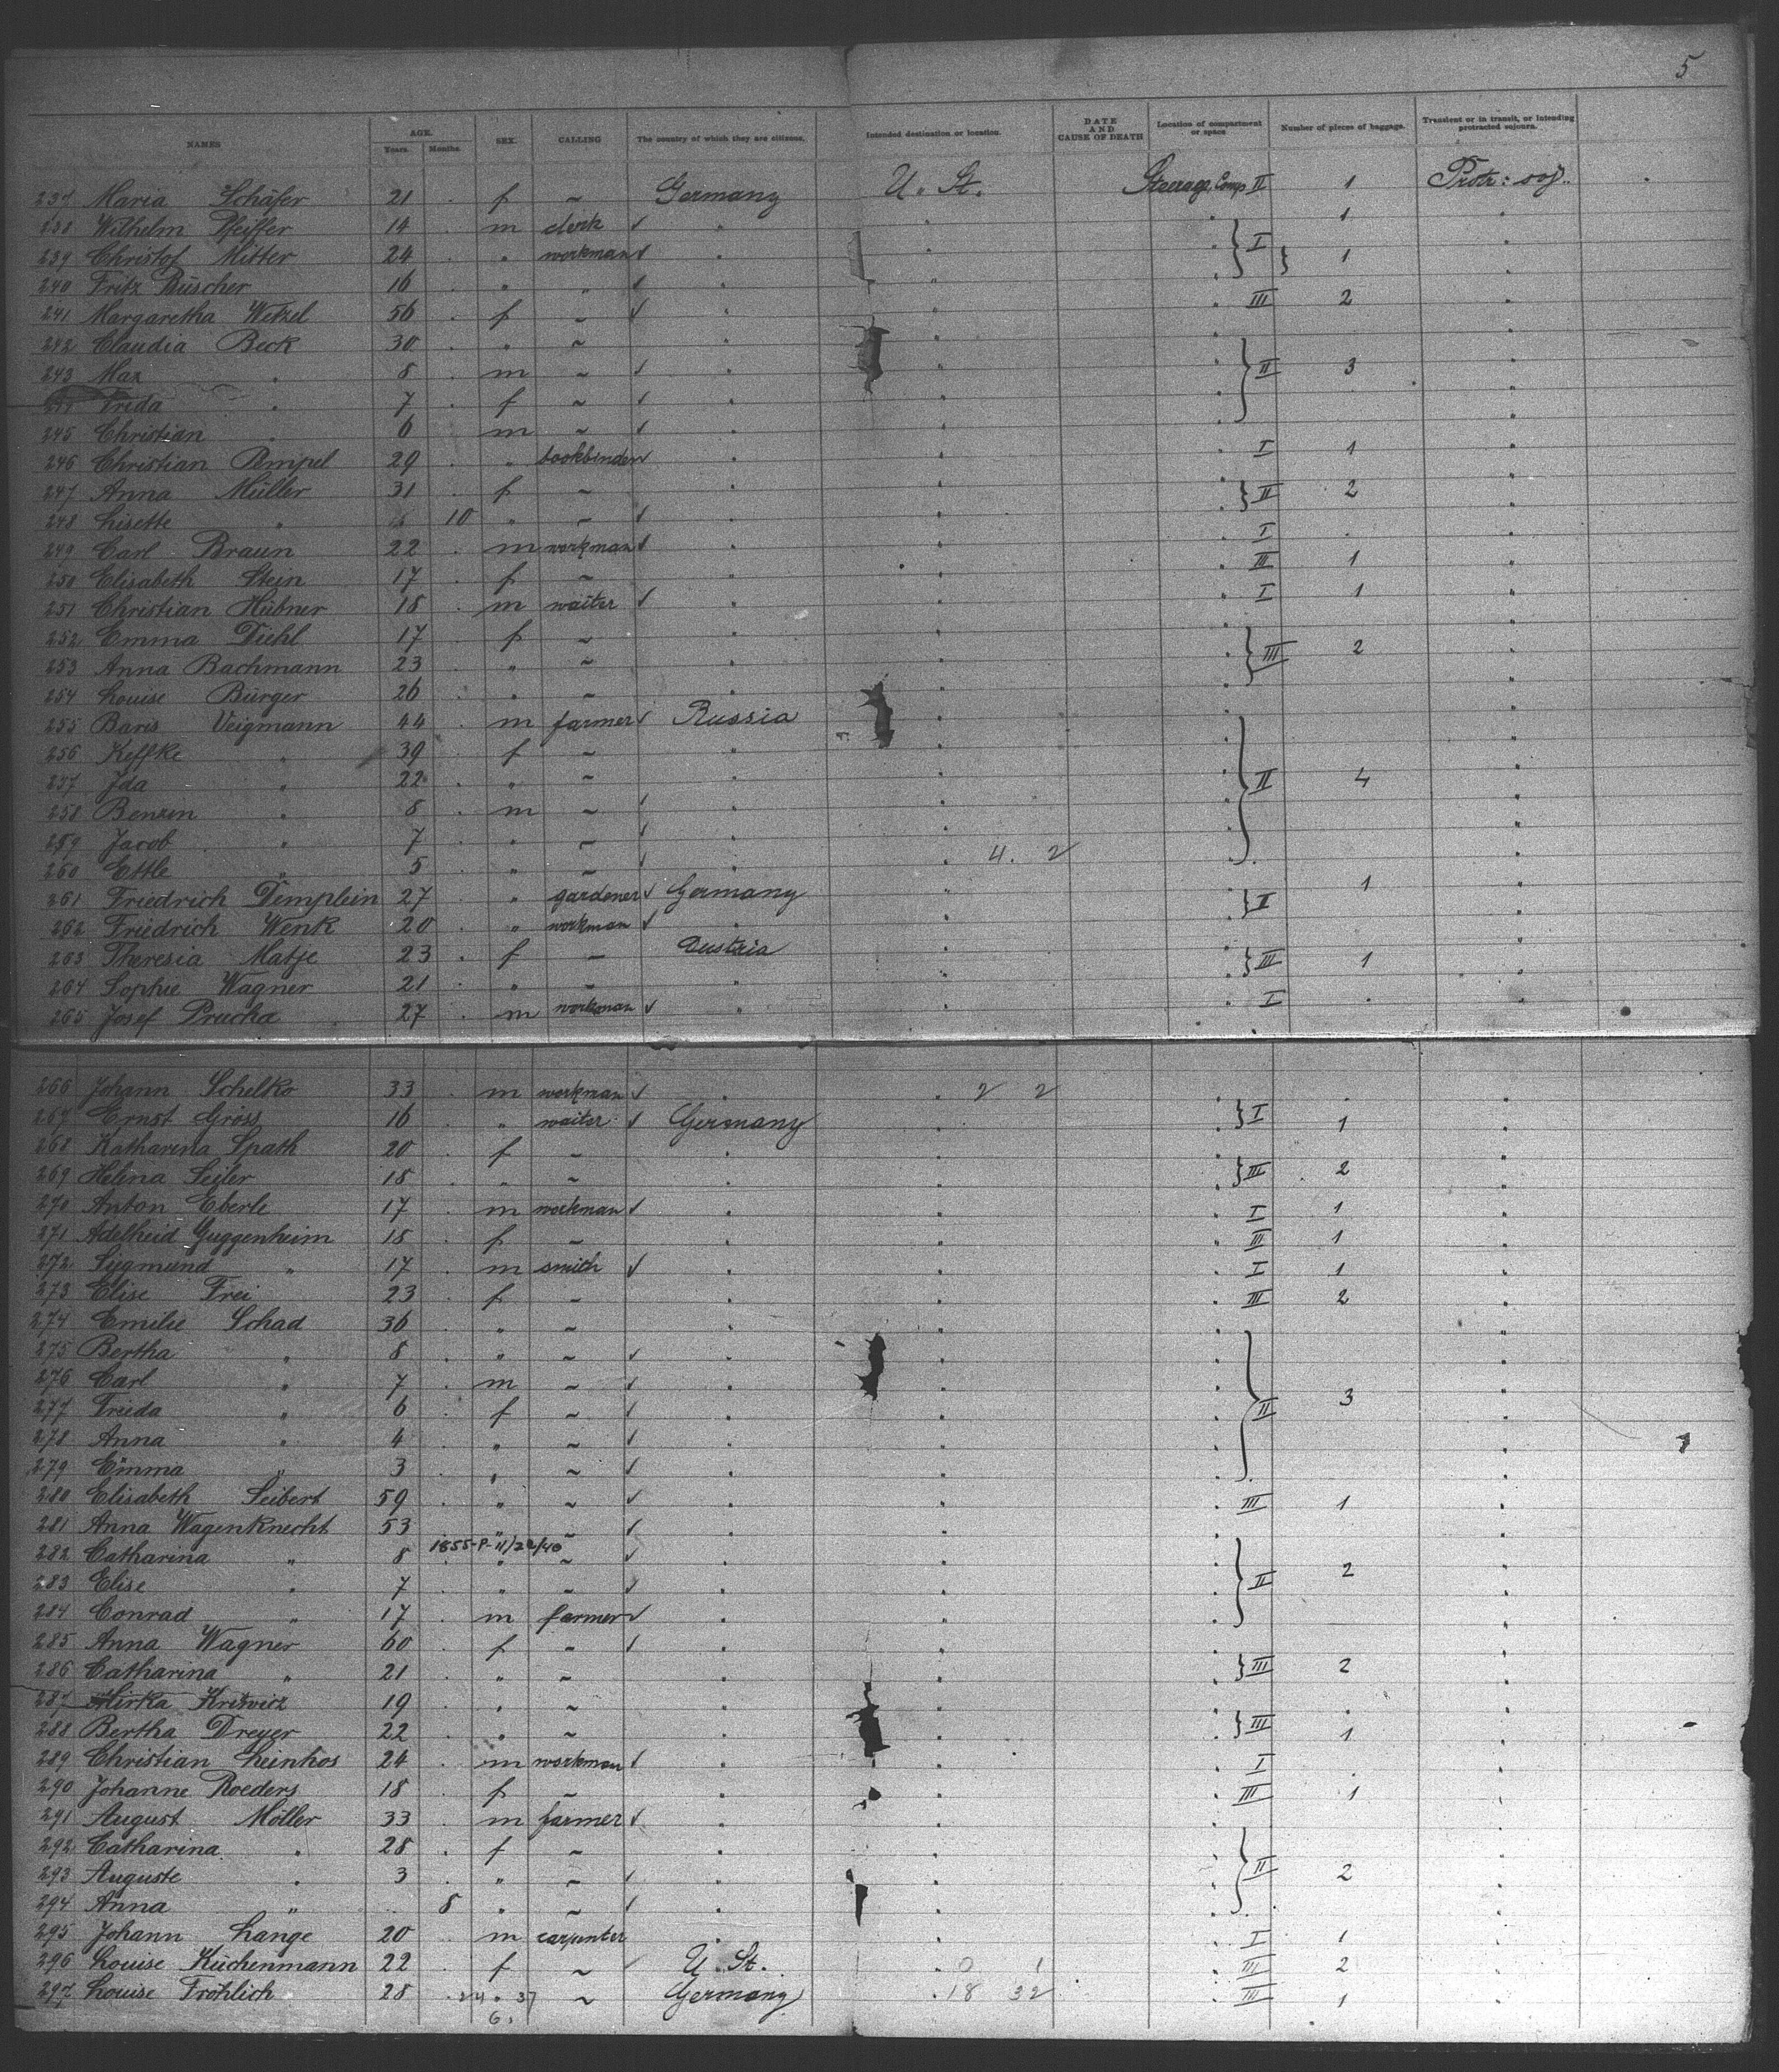 5
NAMES AGE. Years. Months. SEX. CALLING The country of which they are citizens. Intended destination or location. DATE AND CAUSE OF DEATH Location of compartment or space Number of pieces of baggage. Transient or in transit, or intending protracted sojourn.
237 Maria Schäfer 21 f ~ Germany U. St. Steerage Comp II 1 Protr: soj.
238 Wilhelm Pfeiffer 14 m clerk √ " " 1 "
239 Christof Mitter 24 " workman √ " " } I } 1 "
240 Fritz Büscher 16 " " √ " " "
241 Margaretha Wetzel 56 f ~ √ " " III 2 "
242 Claudia Beck 30 " ~ " " "
243 Max " 8 m ~ √ " " } II 3 "
244 Frida " 7 f ~ √ " " "
245 Christian " 6 m ~ √ " " "
246 Christian Pempel 29 " bookbinder √ " " I 1 "
247 Anna Müller 31 f ~ " " } II 2 "
248 Lisette " 10 " ~ √ " " "
249 Carl Braun 22 m workman √ " " I "
250 Elisabeth Stein 17 f ~ " " III 1 "
251 Christian Hübner 18 m waiter √ " " I 1 "
252 Emma Diehl 17 f ~ " " "
253 Anna Bachmann 23 " ~ " " } III 2 "
254 Louise Bürger 26 " ~ " " "
255 Baris Veigmann 44 m farmer √ Russia " "
256 Keffke " 39 f ~ " " "
257 Ida " 22 " ~ " " } II 4 "
258 Benzen " 8 m ~ √ " " "
259 Jacob " 7 " ~ √ " " "
260 Ettle " 5 " ~ √ " " 4. 2 "
261 Friedrich Demplein 27 " gardener √ Germany " } I 1 "
262 Friedrich Wenk 20 " workman √ " " "
263 Theresia Matje 23 f ~ Austria " } III 1 "
264 Sophie Wagner 21 " ~ " " "
265 Josef Prucha 27 m workman √ " I "
266 Johann Schelko 33 m workman √ " 2 2 "
267 Ernst Gross 16 " waiter √ Germany " } I 1 "
268 Katharina Spath 20 f ~ " " "
269 Helina Seiler 18 " ~ " " } III 2 "
270 Anton Eberle 17 m workman √ " " I 1 "
271 Adelheid Guggenheim 18 f ~ " " III 1 "
272 Sigmund " 17 m smith √ " " I 1 "
273 Elise Frei 23 f ~ " " III 2 "
274 Emilie Schad 36 " ~ " " "
275 Bertha " 8 " ~ √ " " "
276 Carl " 7 m ~ √ " " "
277 Frieda " 6 f ~ √ " " } II 3 "
278 Anna " 4 " ~ √ " " "
279 Emma " 3 " ~ √ " " "
280 Elisabeth Seibert 59 " ~ √ " " III 1 "
281 Anna Wagenknecht 53 " ~ √ " " "
282 Catharina " 8 1855-P-11/22/40 " ~ √ " " "
283 Elise " 7 " ~ √ " " } II 2 "
284 Conrad " 17 m farmer √ " " "
285 Anna Wagner 60 f ~ √ " " "
286 Catharina " 21 " ~ " " } III 2 "
287 Mirka Kriswicz 19 " ~ " " "
288 Bertha Dreyer 22 " ~ " " } III 1 "
289 Christian Leinhos 24 m workman √ " " I "
290 Johanne Roeders 18 f ~ " " III 1 "
291 August Möller 33 m farmer √ " " "
292 Catharina " 28 f ~ " " "
293 Auguste " 3 " ~ √ " " } II 2 "
294 Anna " 8 " ~ √ " " "
295 Johann Lange 20 m carpenter " " I 1 "
296 Louise Küchenmann 22 f ~ U. St. " 0 1 III 2 "
297 Louise Fröhlich 28 24 37 ~ Germany " 18 32 III 1 "
6.